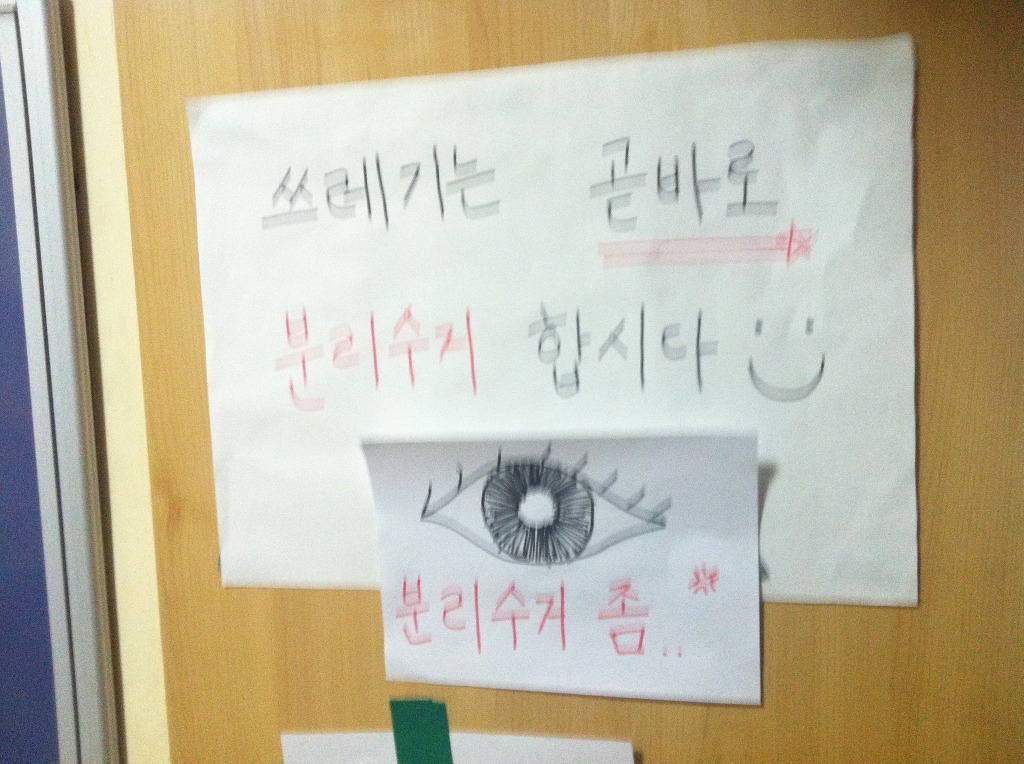 쓰레기는 곧바로
분리수거 합시다
분리수거 좀..